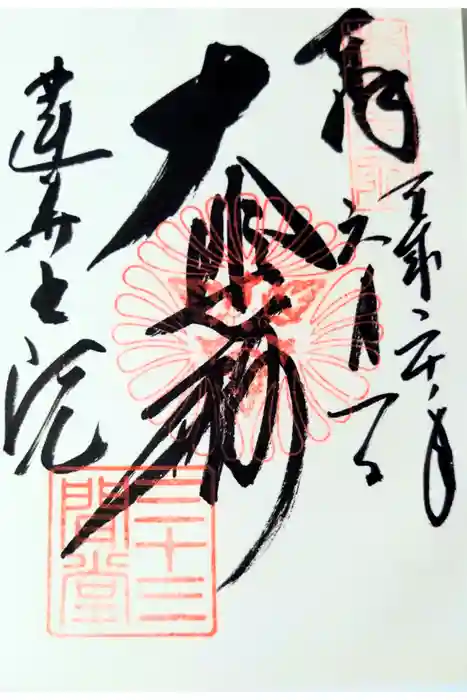 奉拝
平成二十年
六月
大悲閣
蓮華王院
三十三間堂